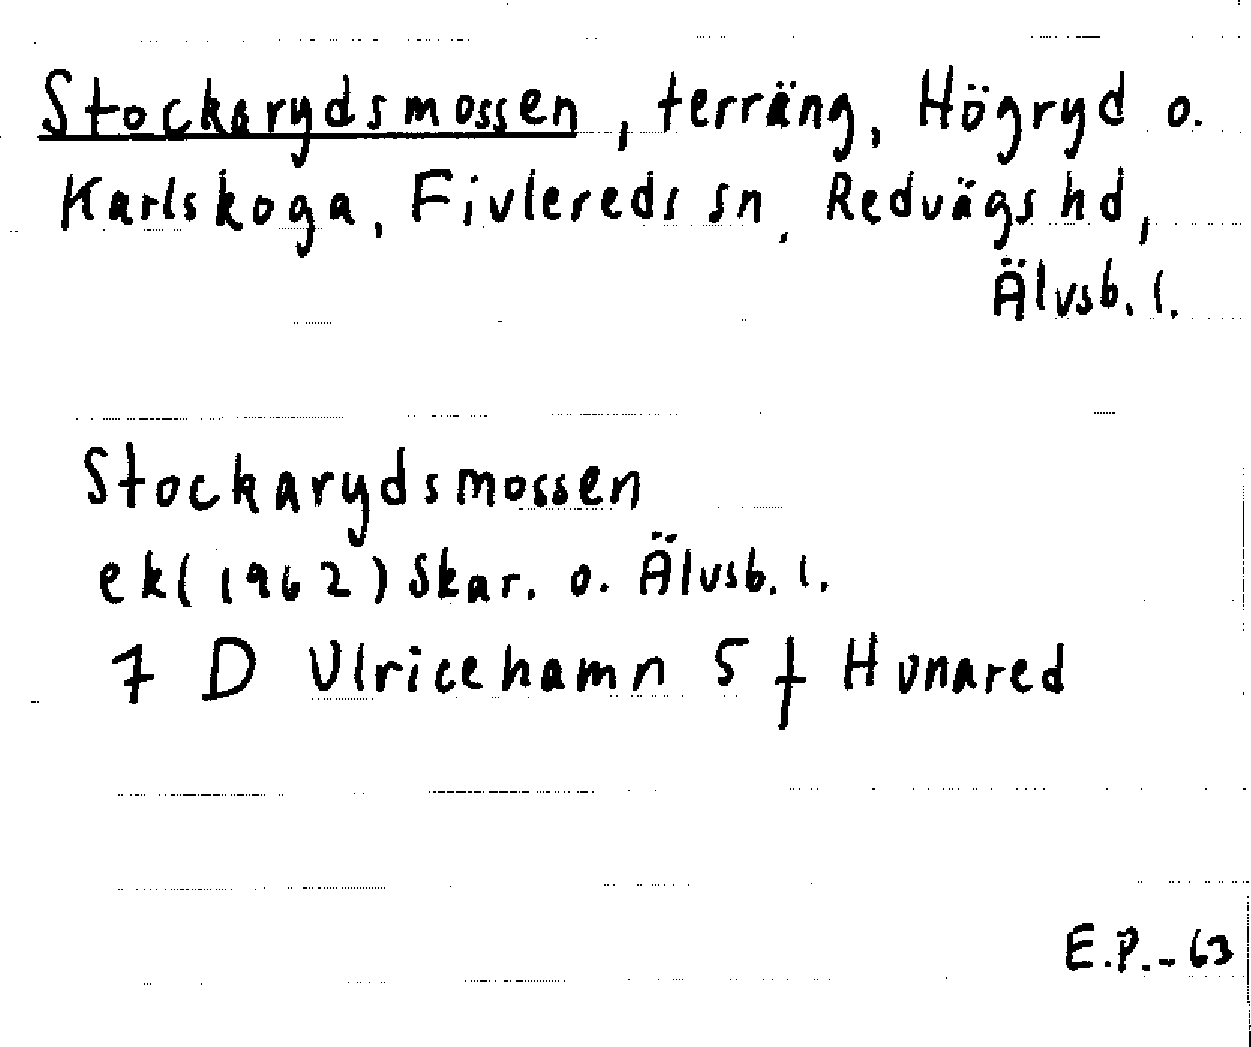 Stockarydsmossen, terräng, Högryd o.
Karlskoga, Fivlereds sn, Redvägs hd,
Älvsb. l.
Stockarydsmossen
ek(1962) Skar. o. Älvsb. l.
7 D Ulricehamn 5 f Hunared
E.P.-63